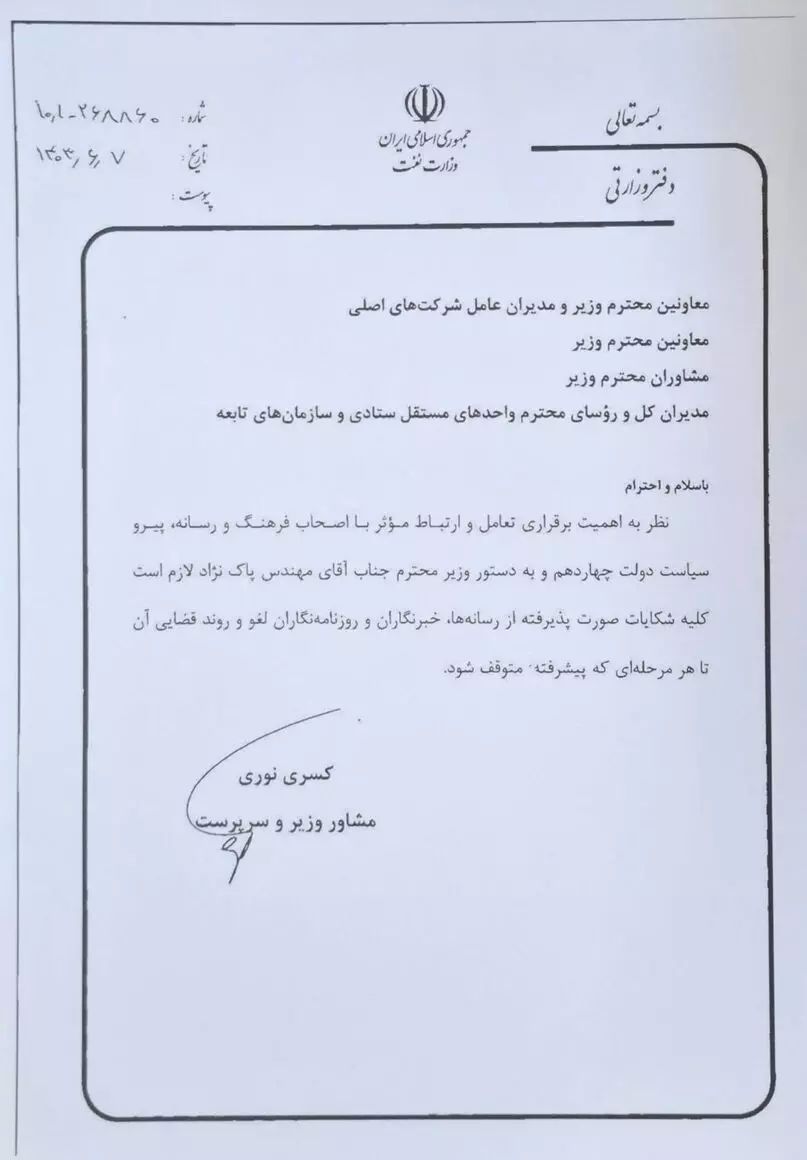 بسمه تعالی
جمهوری اسلامی ایران
وزارت نفت
دفتر وزارتی
شماره:
تاریخ: ۱۴۰۳٫۶٫۷
پیوست:
معاونین محترم وزیر و مدیران عامل شرکت‌های اصلی
معاونین محترم وزیر
مشاوران محترم وزیر
مدیران کل و رؤسای محترم واحدهای مستقل ستادی و سازمان‌های تابعه
باسلام و احترام
نظر به اهمیت برقراری تعامل و ارتباط مؤثر با اصحاب فرهنگ و رسانه، پیرو
سیاست دولت چهاردهم و به دستور وزیر محترم جناب آقای مهندس پاک نژاد لازم است
کلیه شکایات صورت پذیرفته از رسانه‌ها، خبرنگاران و روزنامه‌نگاران لغو و روند قضایی آن
تا هر مرحله‌ای که پیشرفته متوقف شود.
کسری نوری
مشاور وزیر و سرپرست